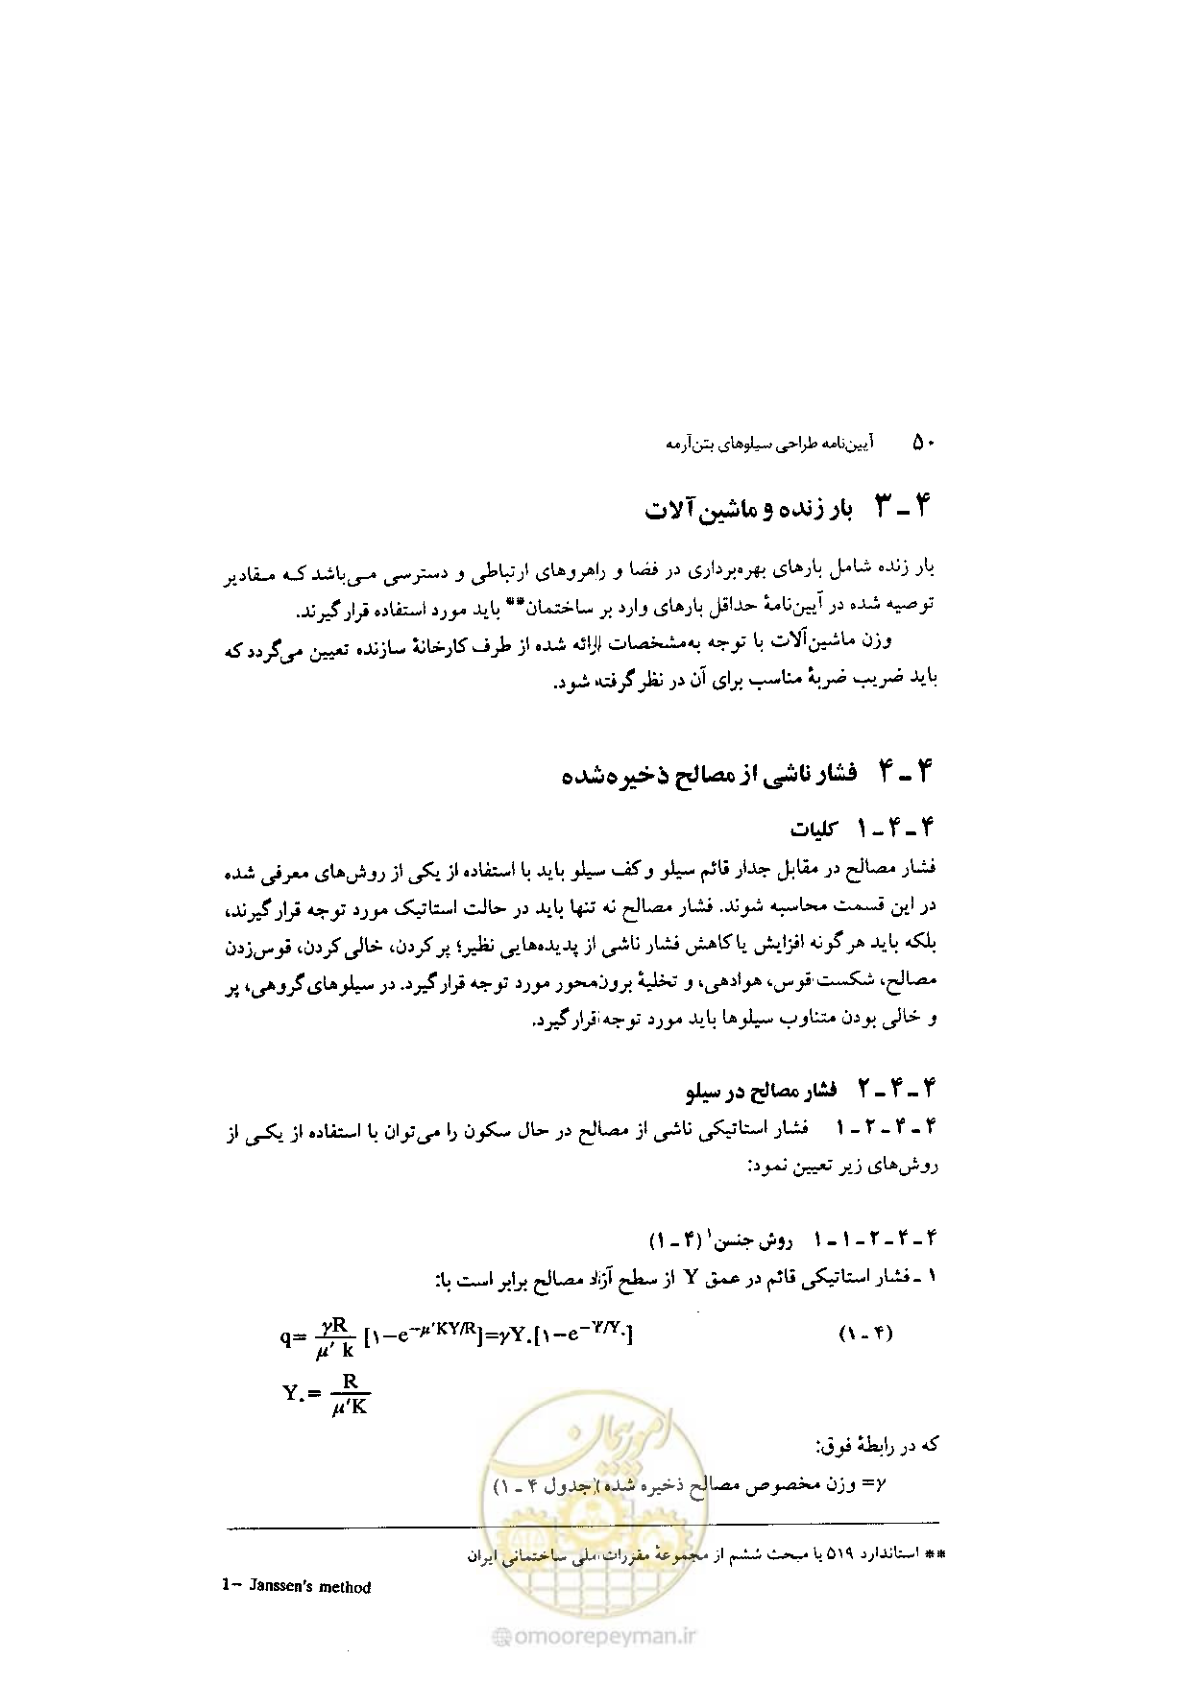 ۵۰ آیین‌نامه طراحی سیلوهای بتن‌آرمه
۴ ـ ۳ بار زنده و ماشین‌آلات
بار زنده شامل بارهای بهره‌برداری در فضا و راهروهای ارتباطی و دسترسی می‌باشد که مقادیر
توصیه شده در آیین‌نامۀ حداقل بارهای وارد بر ساختمان** باید مورد استفاده قرار گیرند.
وزن ماشین‌آلات با توجه به‌مشخصات ارائه شده از طرف کارخانۀ سازنده تعیین می‌گردد که
باید ضریب ضربۀ مناسب برای آن در نظر گرفته شود.
۴ ـ ۴ فشار ناشی از مصالح ذخیره‌شده
۴ ـ ۴ ـ ۱ کلیات
فشار مصالح در مقابل جدار قائم سیلو و کف سیلو باید با استفاده از یکی از روش‌های معرفی شده
در این قسمت محاسبه شوند. فشار مصالح نه تنها باید در حالت استاتیک مورد توجه قرار گیرند،
بلکه باید هر گونه افزایش یا کاهش فشار ناشی از پدیده‌هایی نظیر؛ پر کردن، خالی کردن، قوس‌زدن
مصالح، شکست قوس، هوادهی، و تخلیۀ برون‌محور مورد توجه قرار گیرد. در سیلوهای گروهی، پر
و خالی بودن متناوب سیلوها باید مورد توجه قرار گیرد.
۴ ـ ۴ ـ ۲ فشار مصالح در سیلو
۴ ـ ۴ ـ ۲ ـ ۱ فشار استاتیکی ناشی از مصالح در حال سکون را می‌توان با استفاده از یکی از
روش‌های زیر تعیین نمود:
۴ ـ ۴ ـ ۲ ـ ۱ ـ ۱ روش جنسن¹ (۴ ـ ۱)
۱ ـ فشار استاتیکی قائم در عمق Y از سطح آزاد مصالح برابر است با:
q= γR/μ′ k [۱−e^−μ′KY/R]=γY.[۱−e^−Y/Y.] (۴ ـ ۱)
Y.= R/μ′K
که در رابطۀ فوق:
γ= وزن مخصوص مصالح ذخیره شده (جدول ۴ ـ ۱)
** استاندارد ۵۱۹ یا مبحث ششم از مجموعۀ مقررات ملی ساختمانی ایران
1− Janssen's method
امور پیمان
@omoorepeyman.ir